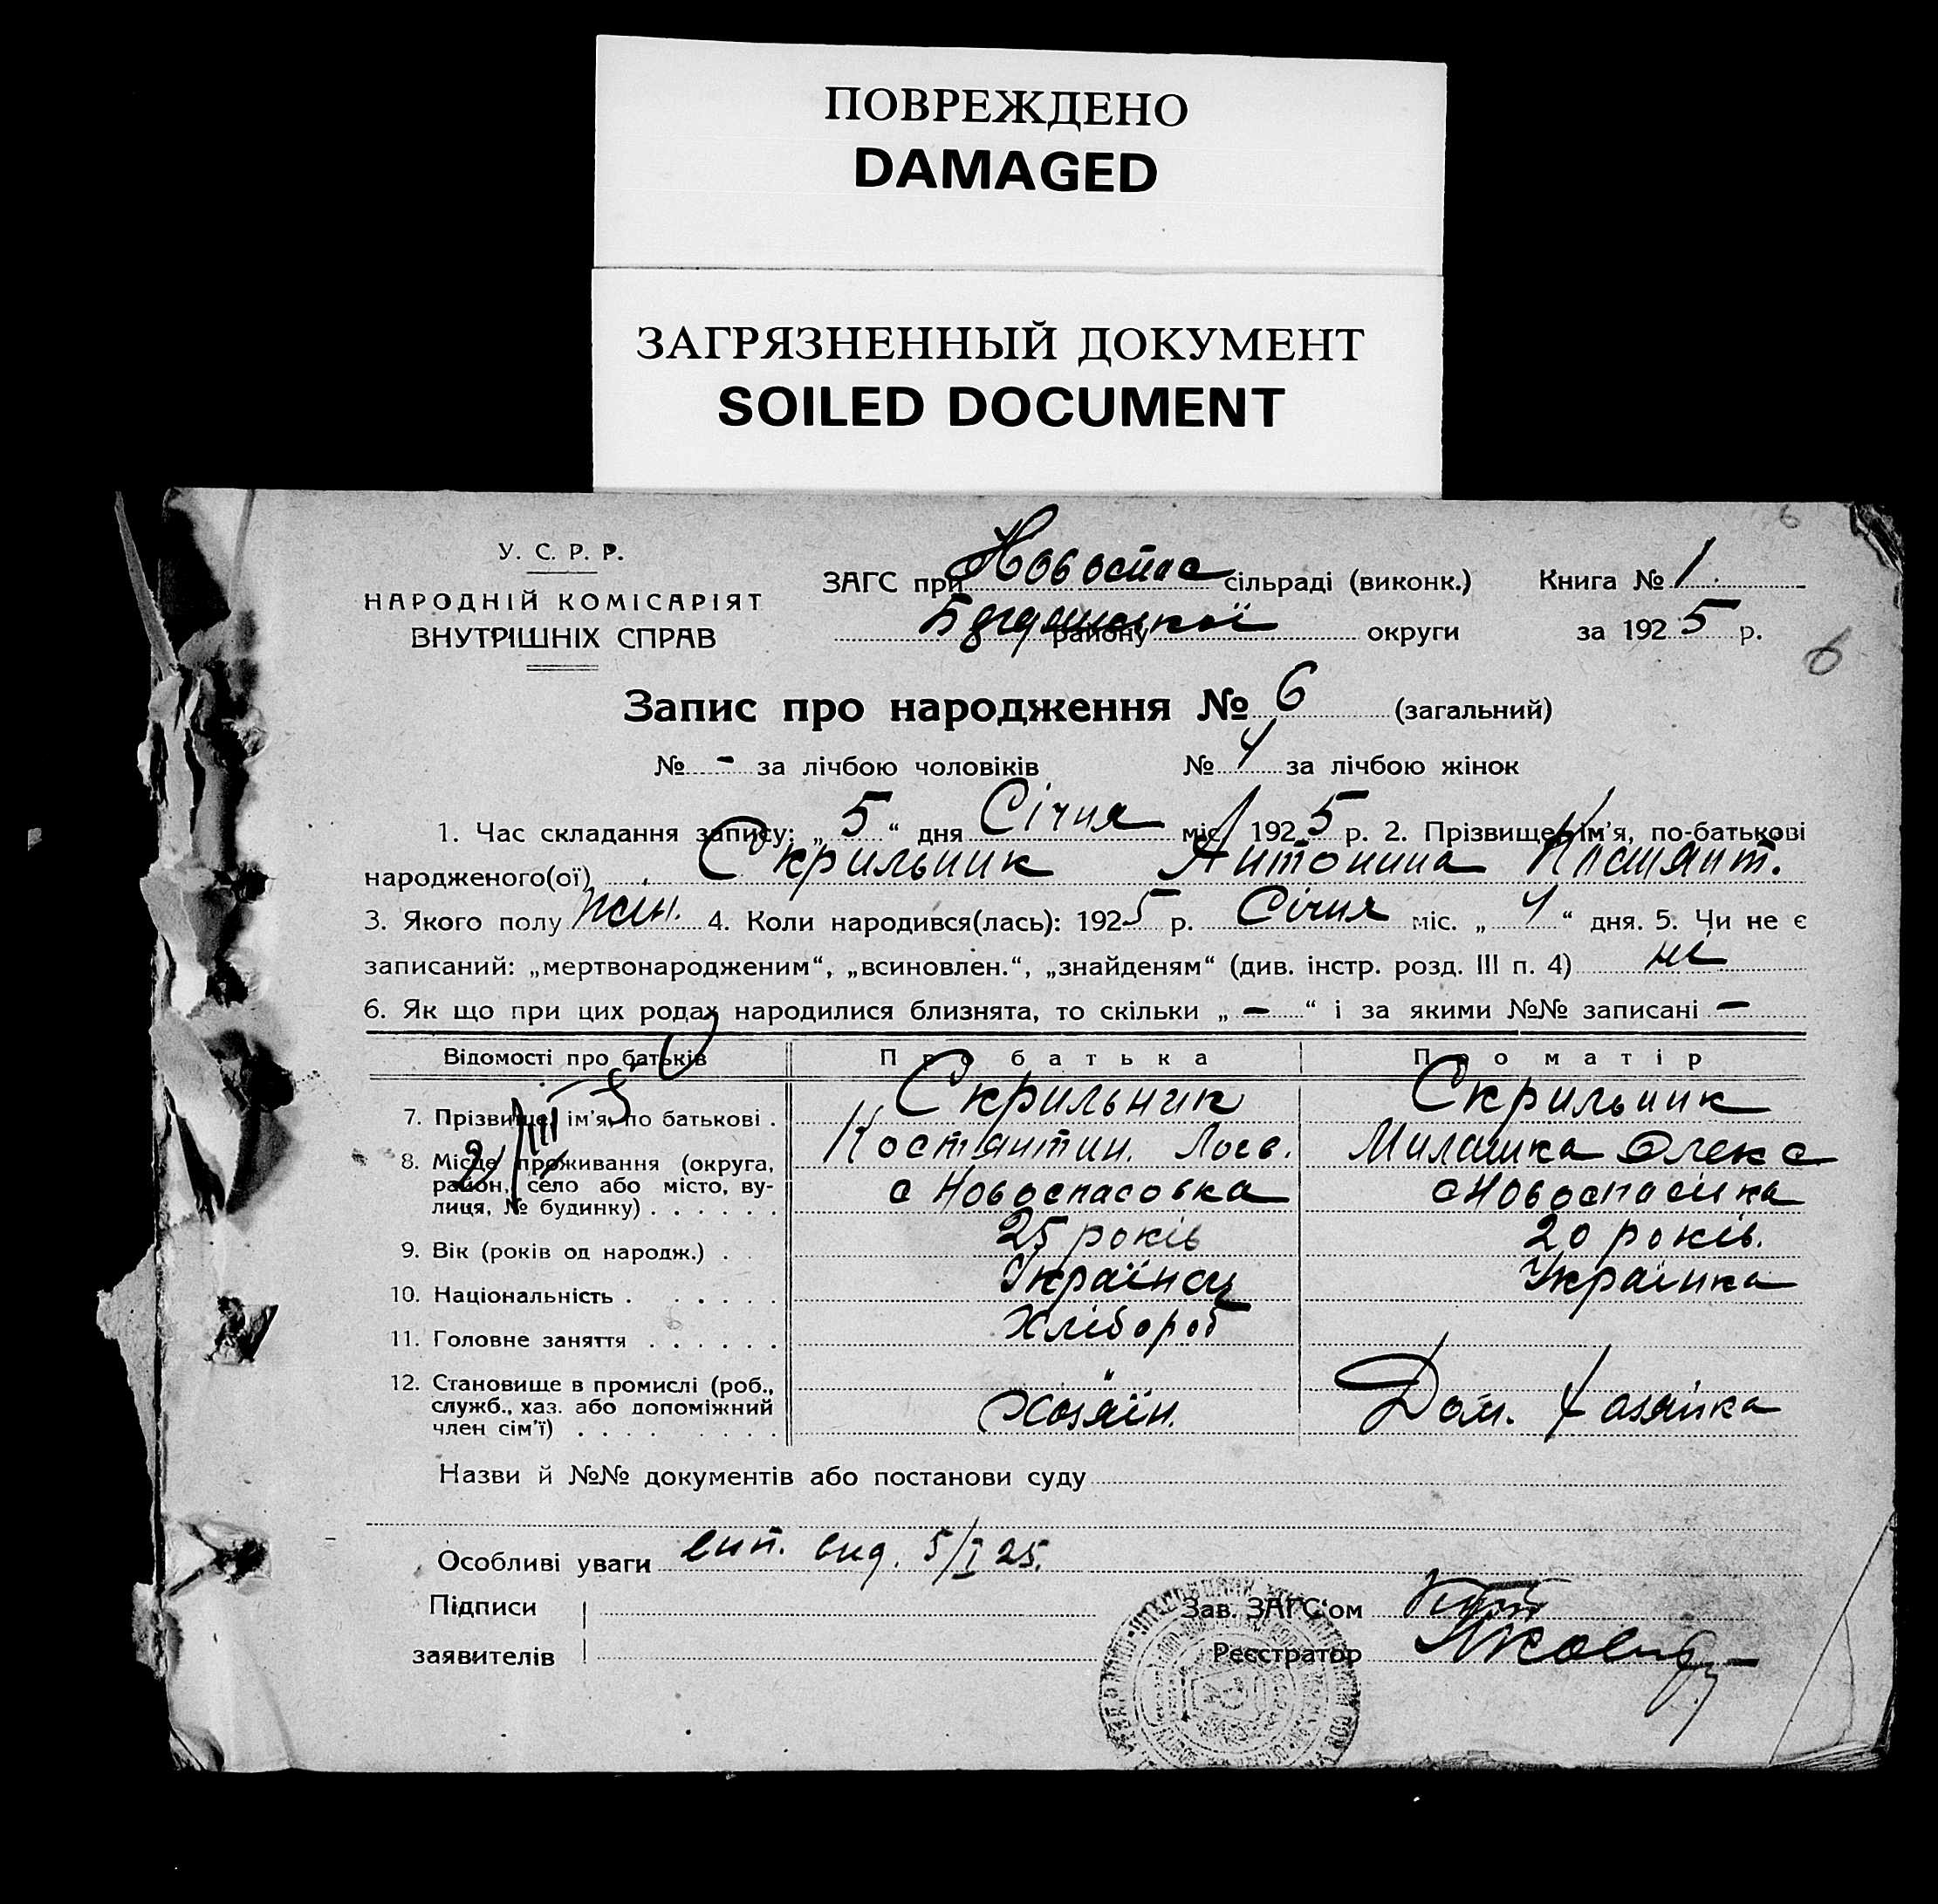 ПОВРЕЖДЕНО
DAMAGED
ЗАГРЯЗНЕННЫЙ ДОКУМЕНТ
SOILED DOCUMENT
6
У. С. Р. Р.
НАРОДНІЙ КОМІСАРІЯТ
ВНУТРІШНІХ СПРАВ
ЗАГС при Новоспас сільраді (виконк.) Книга № 1
району округи за 1925 р.
6
Запис про народження № 6 (загальний)
№ - за лічбою чоловіків № 4 за лічбою жінок
1. Час складання запису: „ 5 “ дня Січня міс. 1925 р. 2. Прізвище, ім'я, по-батькові
народженого(ої) Скрильник Антонина Костянт.
3. Якого полу жін. 4. Коли народився(лась): 1925 р. Січня міс. „ 4 “ дня. 5. Чи не є
записаний: „мертвонародженим“, „всиновлен.“, „знайденям“ (див. інстр. розд. III п. 4) ні
6. Як що при цих родах народилися близнята, то скільки „ — “ і за якими №№ записані —
Відомості про батьків Про батька Про матір
7. Прізвище, ім'я, по батькові . Скрильник Скрильник
Костянтин. Олекс
8. Місце проживання (округа, район, село або місто, вулиця, № будинку) . . . . . . с Новоспасовка с Новоспасівка
9. Вік (років од народж.) . 25 років 20 років.
10. Національність . . . . . . Українец Українка
11. Головне заняття . . . . . . Хлібороб
12. Становище в промислі (роб., служб., хаз. або допоміжний член сім'ї) . . . . . . . . Хозяїн. Дом. Хазяйка
Назви й №№ документів або постанови суду
Особливі уваги вип. вид. 5/I 25.
Підписи Зав. ЗАГС'ом
заявителів Реєстратор